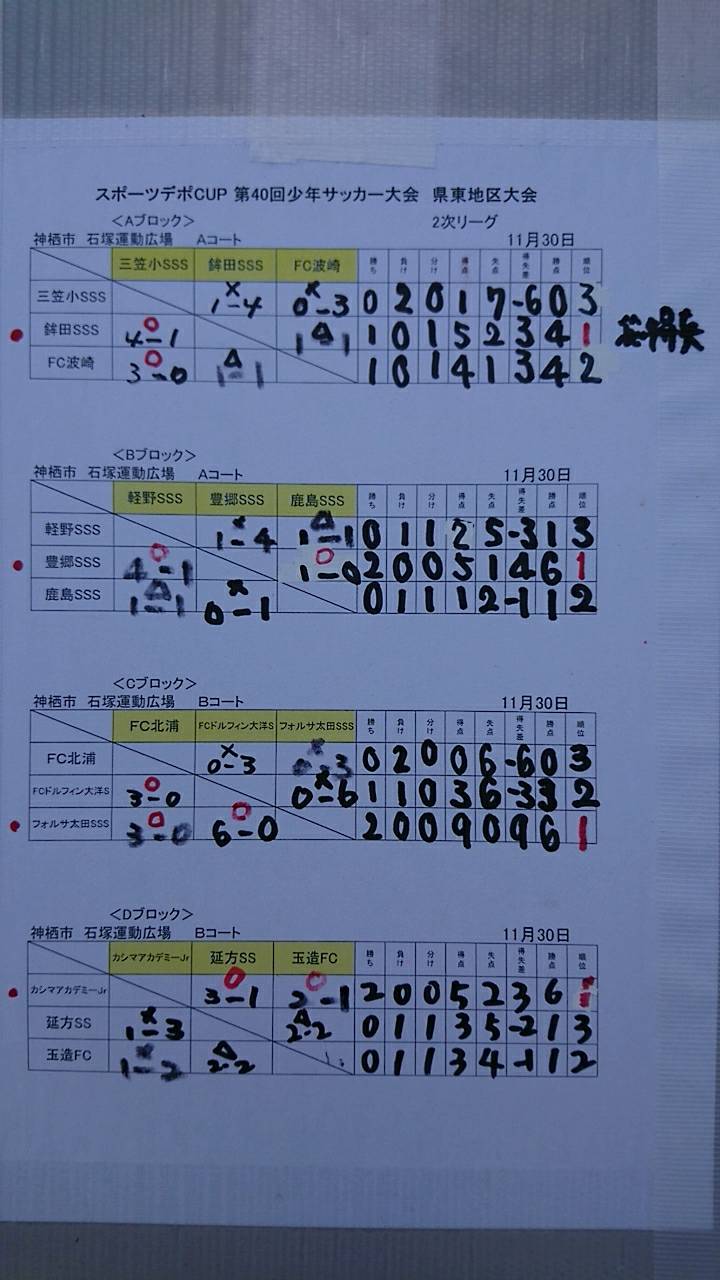 スポーツデポCUP 第40回少年サッカー大会 県東地区大会
<Aブロック> 2次リーグ
神栖市 石塚運動広場 Aコート 11月30日
三笠小SSS 鉾田SSS FC波崎 勝ち 負け 分け 得点 失点 得失差 勝点 順位
三笠小SSS × 1-4 × 0-3 0 2 0 1 7 -6 0 3
鉾田SSS ○ 4-1 △ 1-1 1 0 1 5 2 3 4 1
FC波崎 ○ 3-0 △ 1-1 1 0 1 4 1 3 4 2
<Bブロック>
神栖市 石塚運動広場 Aコート 11月30日
軽野SSS 豊郷SSS 鹿島SSS 勝ち 負け 分け 得点 失点 得失差 勝点 順位
軽野SSS × 1-4 △ 1-1 0 1 1 2 5 -3 1 3
豊郷SSS ○ 4-1 ○ 1-0 2 0 0 5 1 4 6 1
鹿島SSS △ 1-1 × 0-1 0 1 1 1 2 -1 1 2
<Cブロック>
神栖市 石塚運動広場 Bコート 11月30日
FC北浦 FCドルフィン大洋S フォルサ太田SSS 勝ち 負け 分け 得点 失点 得失差 勝点 順位
FC北浦 × 0-3 × 0-3 0 2 0 0 6 -6 0 3
FCドルフィン大洋S ○ 3-0 × 0-6 1 1 0 3 6 -3 3 2
フォルサ太田SSS ○ 3-0 ○ 6-0 2 0 0 9 0 9 6 1
<Dブロック>
神栖市 石塚運動広場 Bコート 11月30日
カシマアカデミーJr 延方SS 玉造FC 勝ち 負け 分け 得点 失点 得失差 勝点 順位
カシマアカデミーJr ○ 3-1 ○ 2-1 2 0 0 5 2 3 6 1
延方SS × 1-3 △ 2-2 0 1 1 3 5 -2 1 3
玉造FC × 1-2 △ 2-2 0 1 1 3 4 -1 1 2